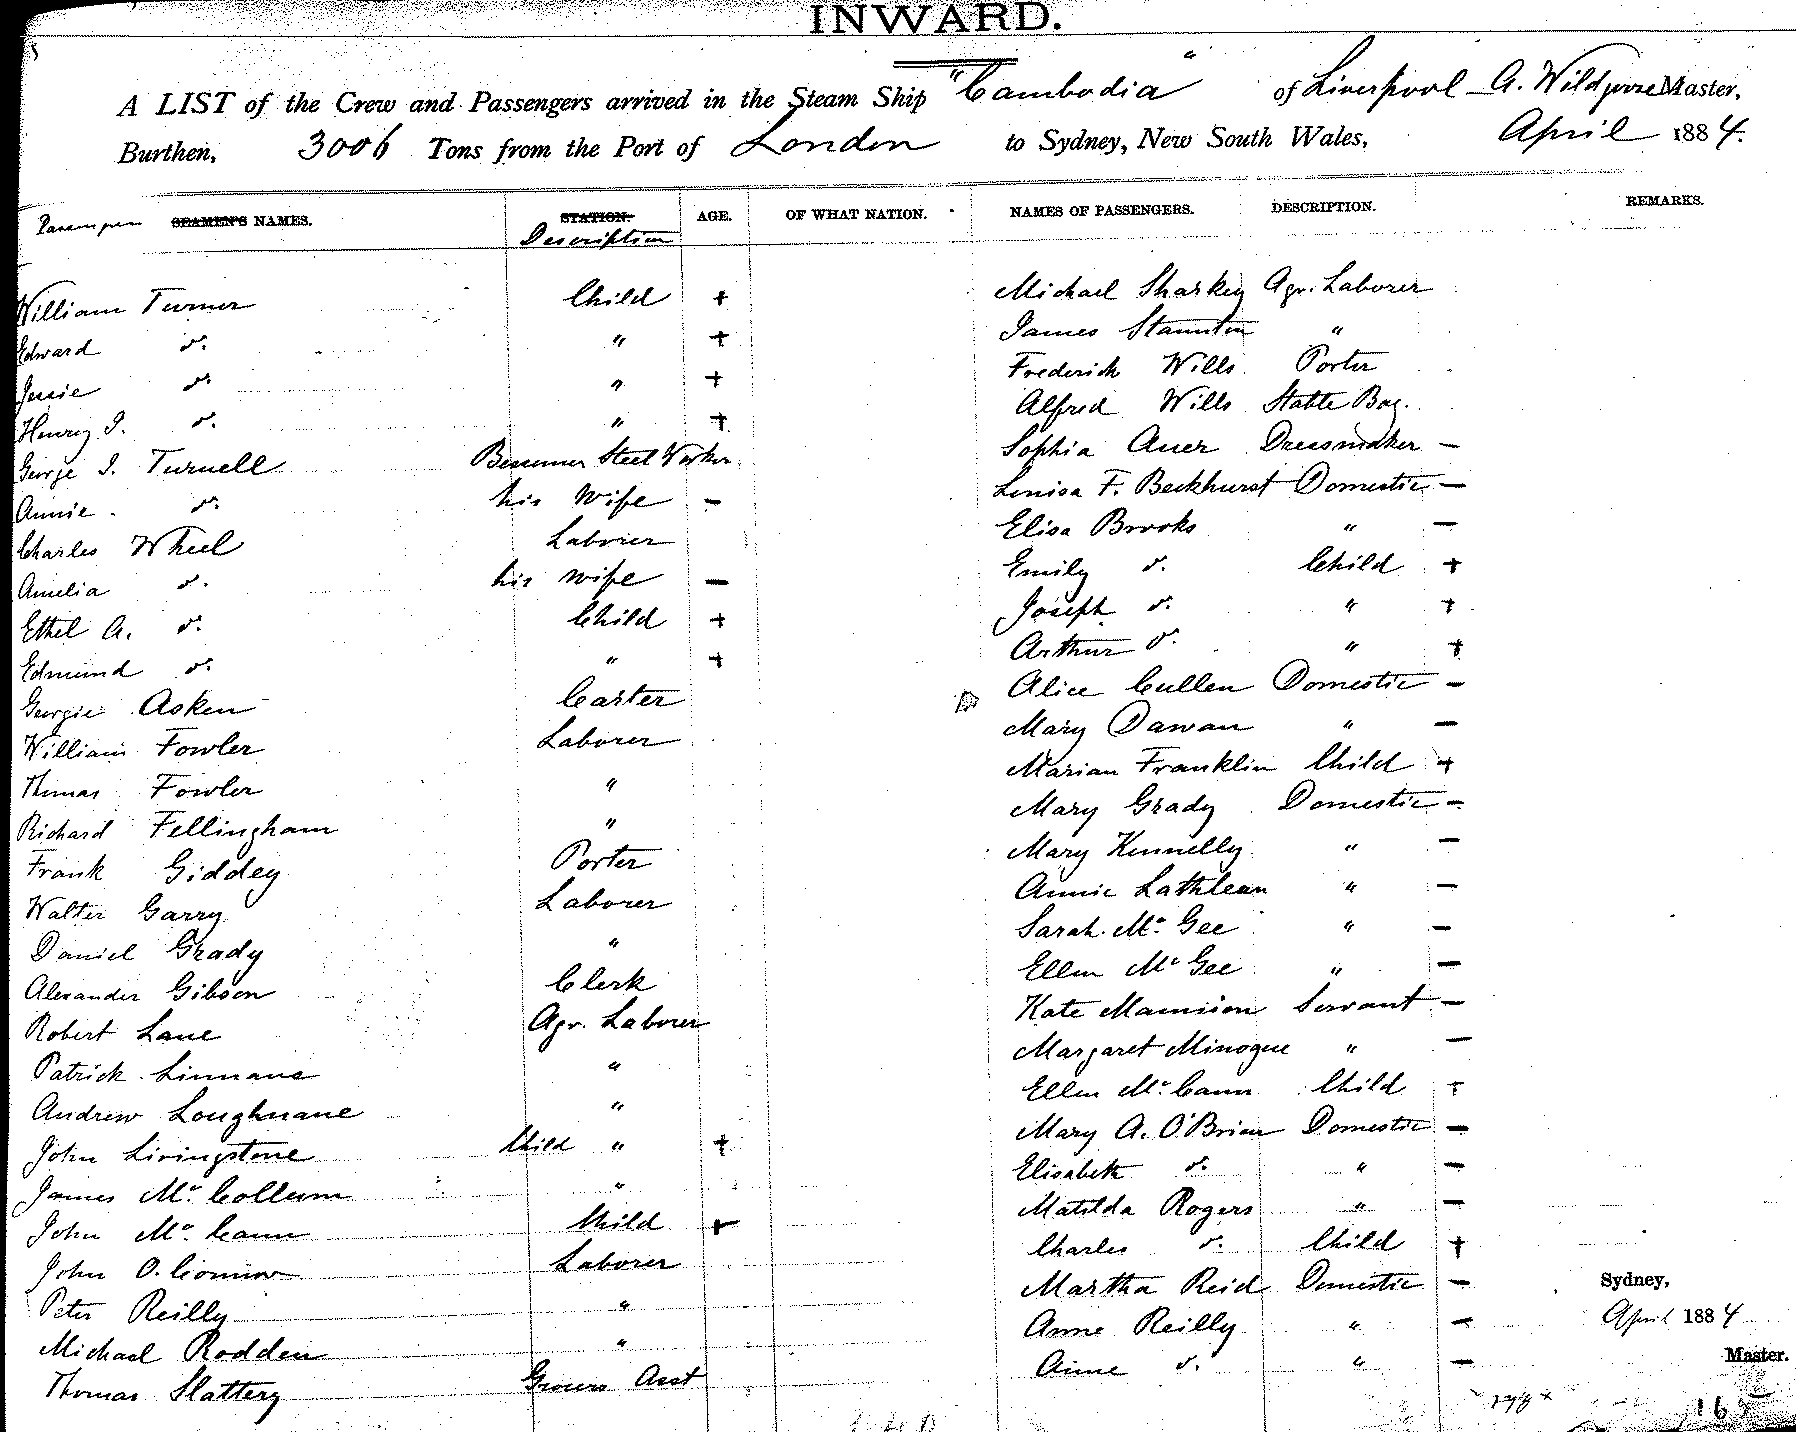 INWARD.
A LIST of the Crew and Passengers arrived in the Steam Ship "Cambodia" of Liverpool A. Wildgoose Master,
Burthen, 3006 Tons from the Port of London to Sydney, New South Wales, April 1884.
Passengers SEAMEN'S NAMES. STATION. AGE. OF WHAT NATION. NAMES OF PASSENGERS. DESCRIPTION. REMARKS.
Description
William Turner Child + Michael Sharkey Agr. Laborer
Edward do. " + James Staunton "
Jessie do. " + Frederick Wills Porter
Henry J. do. " + Alfred Wills Stable Boy.
George J. Turnell Bessemer Steel Worker Sophia Auer Dressmaker —
Annie do. his Wife — Louisa F. Beckhurst Domestic —
Charles Wheel Laborer Elisa Brooks " —
Amelia do. his wife — Emily do. Child +
Ethel A. do. Child + Joseph do. " +
Edmund do. " + Arthur do. " +
George Asken Carter Alice Cullen Domestic —
William Fowler Laborer Mary Dawan " —
Thomas Fowler " Marian Franklin Child +
Richard Fellingham " Mary Grady Domestic —
Frank Giddey Porter Mary Kennelly " —
Walter Garry Laborer Annie Lathlean " —
Daniel Grady " Sarah Mc Gee " —
Alexander Gibson Clerk Ellen Mc Gee " —
Robert Lane Agr. Laborer Kate Mannion Servant —
Patrick Linnane " Margaret Minogue " —
Andrew Loughnane " Ellen Mc Cann Child +
John Livingstone Child " + Mary A. O'Brien Domestic —
James Mc Collum " Elisabeth do. " —
John Mc Cann Child + Matilda Rogers " —
John O. Connor Laborer Charles do. Child +
Peter Reilly " Martha Reid Domestic — Sydney,
Michael Rodden " Anne Reilly " — April 1884
Thomas Slattery Grocers Asst Anne do. " — Master.